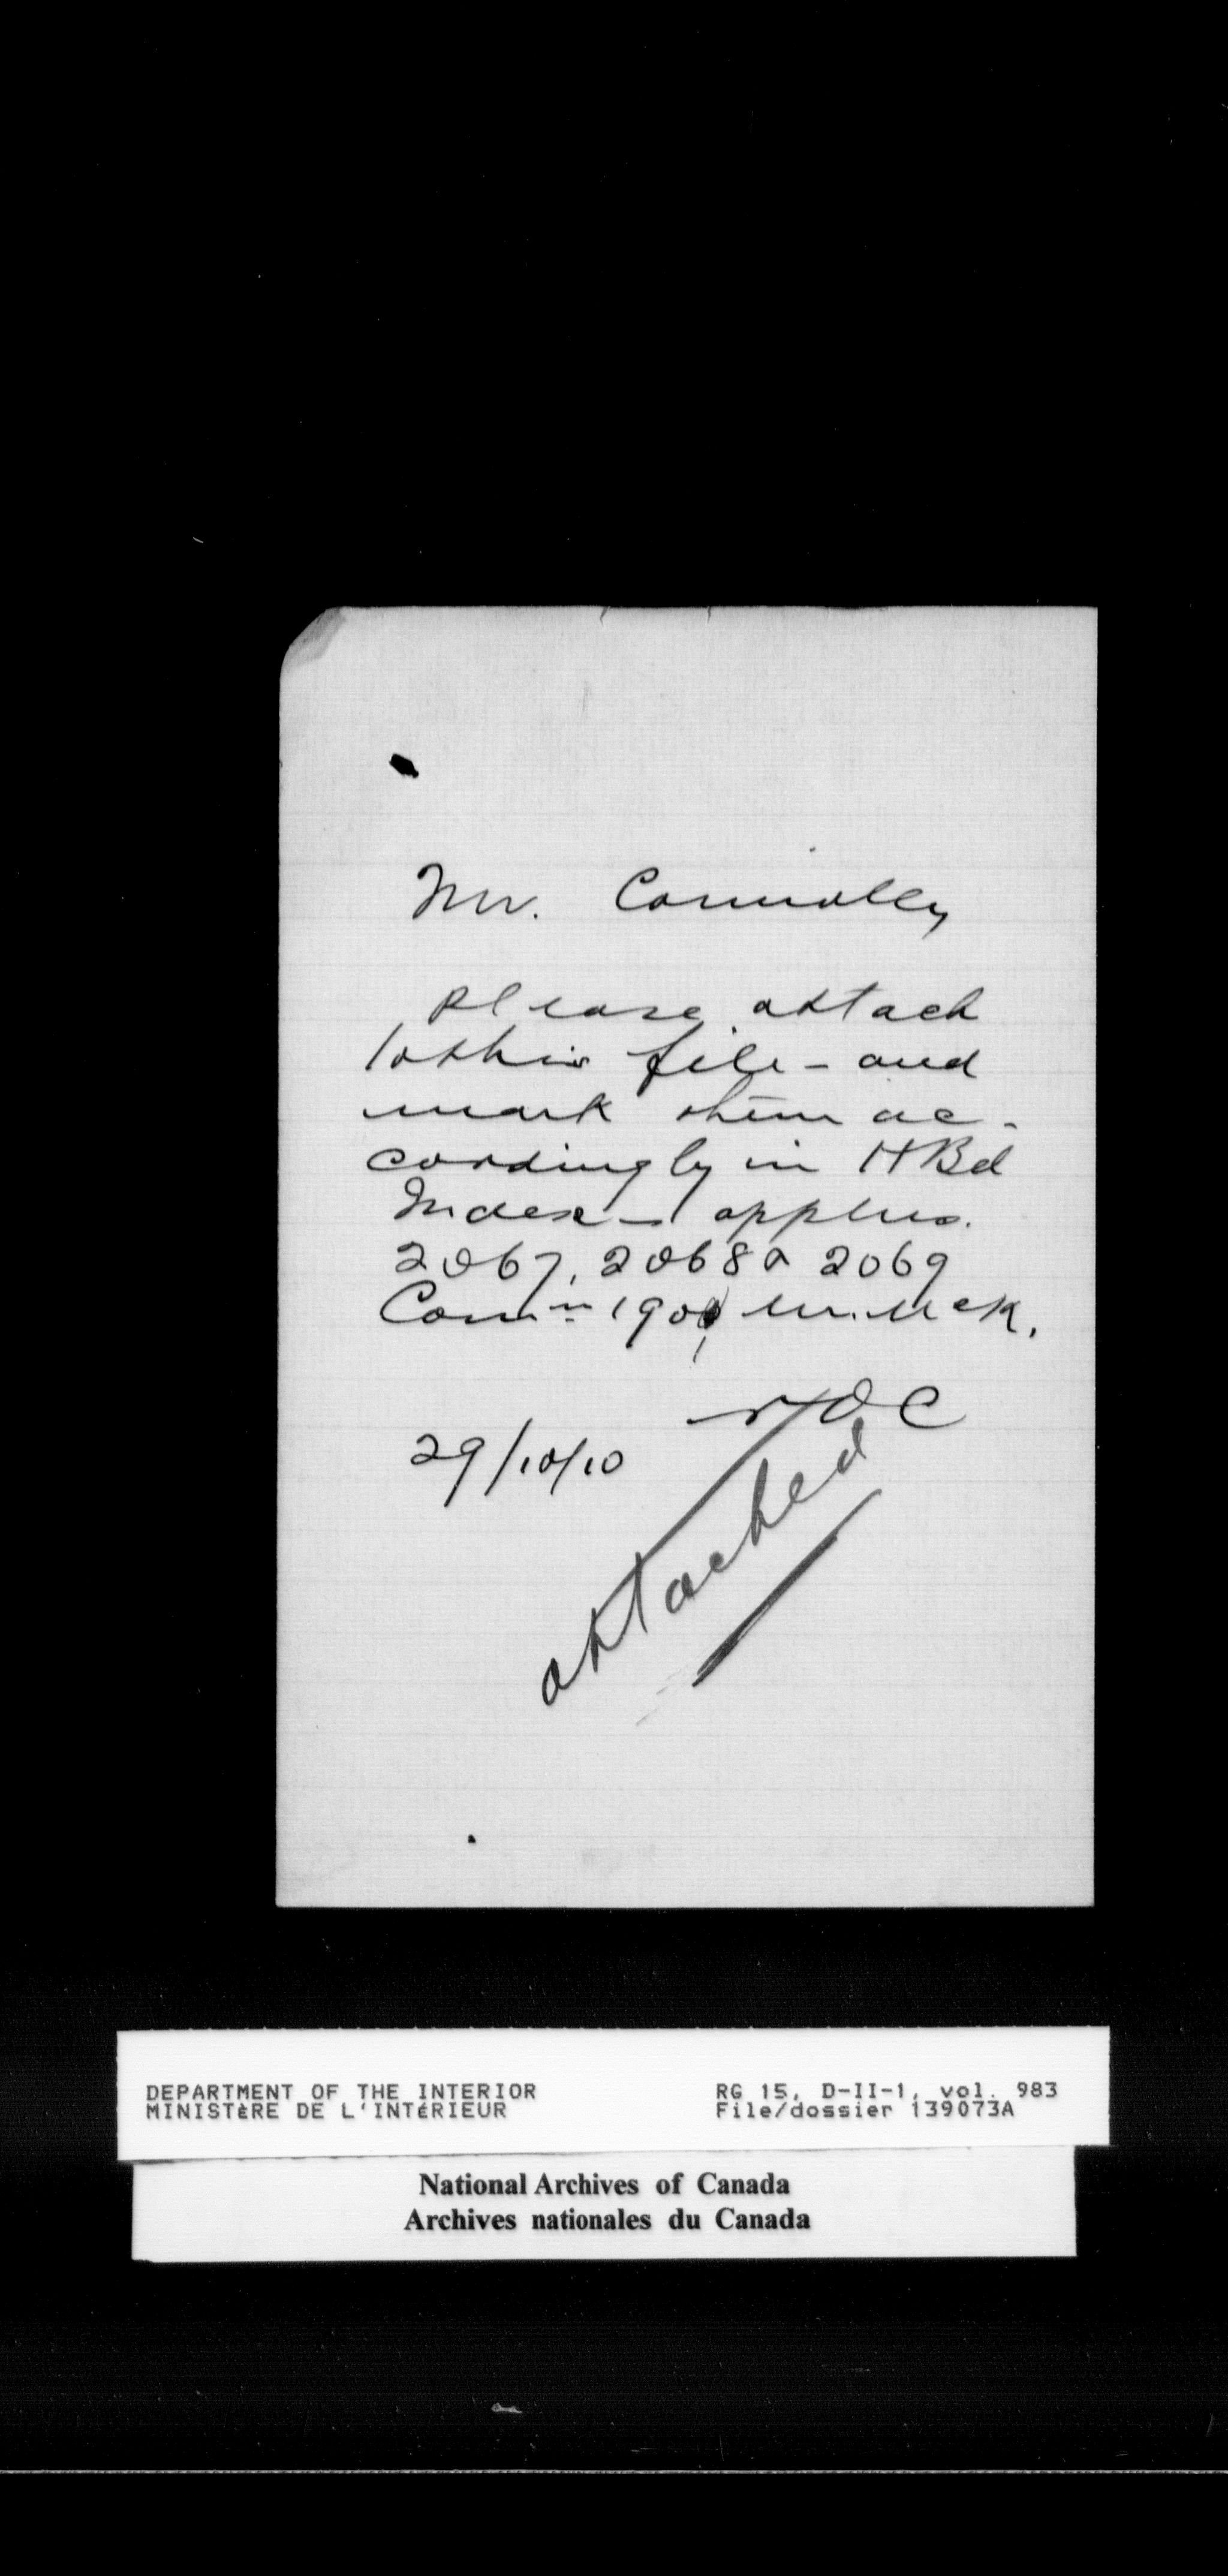 Mr. Connolly
Please attach
to this file - and
mark them ac-
cordingly in HBd
Index - applns.
2067, 2068 a 2069
Comn 1901
NOC
29/10/10
attached
DEPARTMENT OF THE INTERIOR
MINISTÈRE DE L'INTÉRIEUR
RG 15, D-II-1, vol. 983
File/dossier 139073A
National Archives of Canada
Archives nationales du Canada